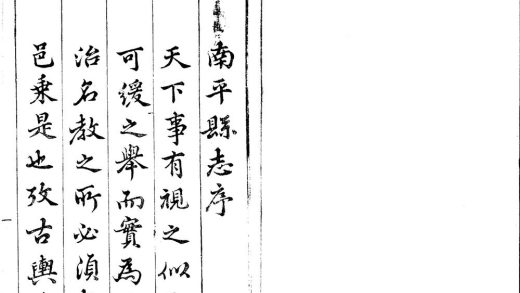 南平縣志序
天下事有視之似
可緩之舉而實為
治名教之所必須
邑乘是也攷古輿